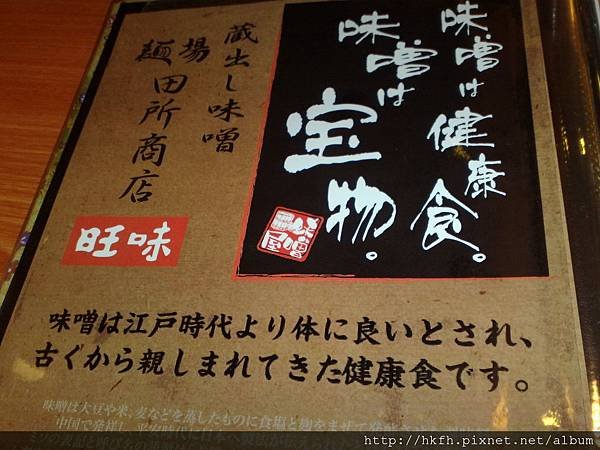 味噌は健康食。
味噌は宝物。
蔵出し味噌
麺場
田所商店
旺味
味噌は江戸時代より体に良いとされ、
古くから親しまれてきた健康食です。
味噌は大豆や米、麦などを蒸したものに食塩と麹をまぜて発酵させた
http://hkfh.pixnet.net/album